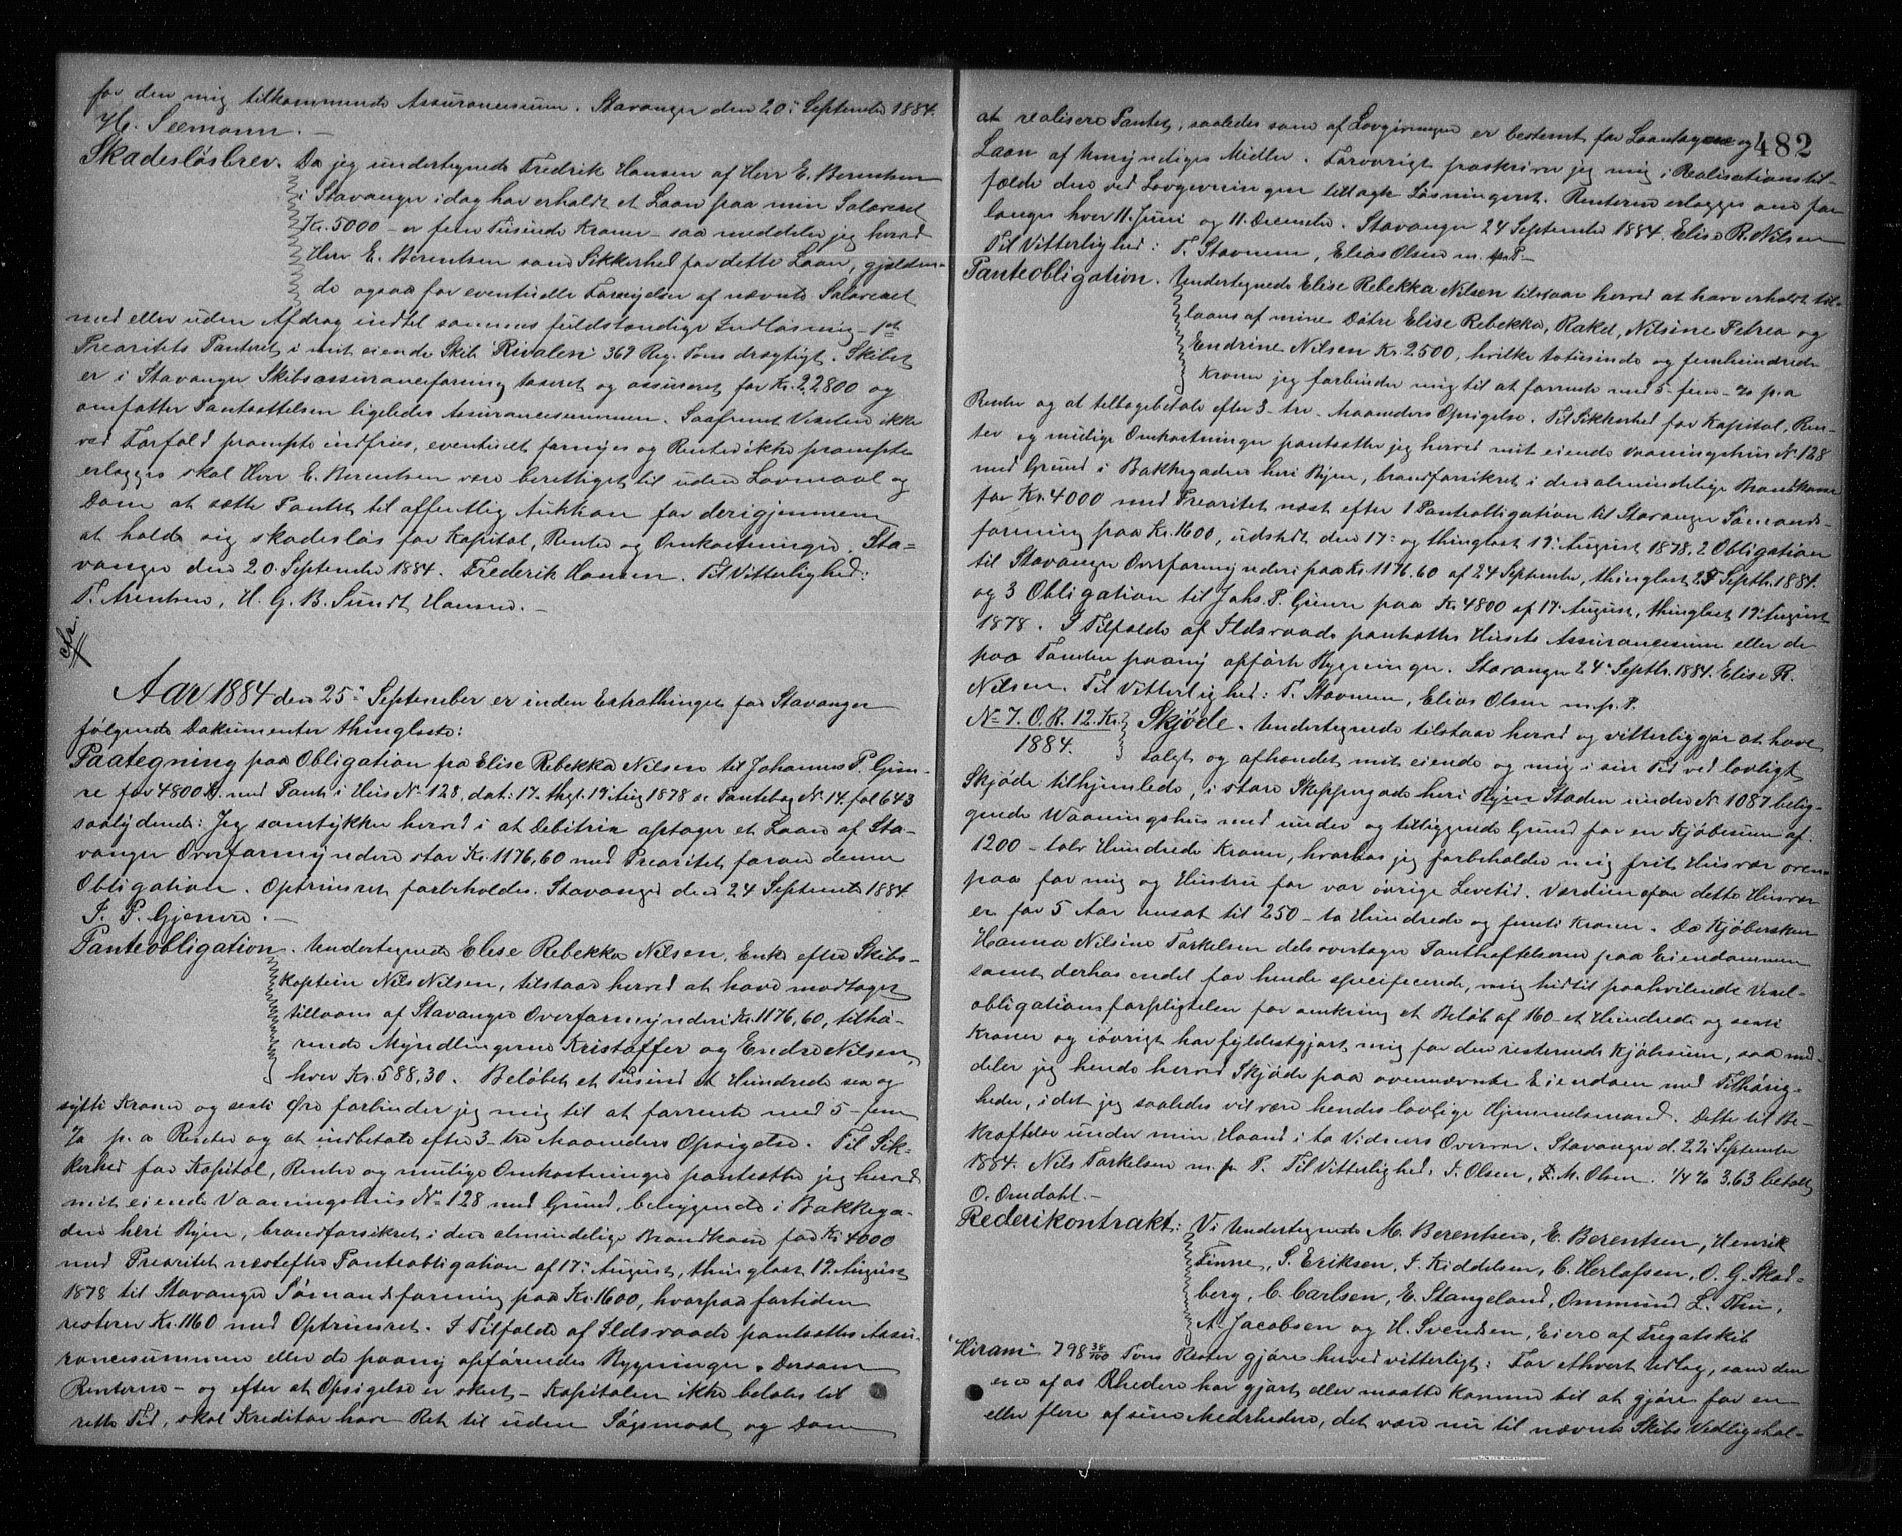 for den mig tilkommende Assurancesum. Stavanger den 20de September 1884.
H. Seemann.
Skadesløsbrev. Da jeg undertegnede Fredrik Hansen af Herr E. Berentsen
i Stavanger idag har erholdt et Laan paa min Solavexel
Kr. 5000 - er fem Tusinde Kroner - saa meddeler jeg herved
Herr E. Berentsen som Sikkerhed for dette Laan, gjælden-
de ogsaa for eventuelle Fornyelser af nævnte Solavexel
med eller uden Afdrag indtil sammes fuldstændige Indløsning - 1ste
Prioritets Panteret i mit eiende Skib "Rivalen" 369 Reg. Tons drægtigt. Skibet
er i Stavanger Skibsassuranceforening taxeret og assureret for Kr. 22800 og
omfatter Pantsættelsen ligeledes Assurancesummen. Saafremt Vexelen ikke
ved Forfald prompte indfries, eventuelt fornyes og Renter ikke prompte
erlægges skal Herr E. Berentsen være berettiget til uden Lovmaal og
Dom at sætte Pantet til offentlig Auktion for derigjennem
at holde sig skadesløs for Kapital, Renter og Omkostninger. Sta-
vanger den 20. September 1884. Frederik Hansen. Til Vitterlighed:
T. Arentsen, H. G. B. Sundt Hansen.
Aar 1884 den 25de September er inden Extrathinget for Stavanger
følgende Dokumenter thinglæste:
Paategning paa Obligation fra Elise Rebekka Nilsen til Johannes P. Gjem-
re for 4800 Kr. med Pant i Hus No 128, dat: 17. thgl. 19 Aug 1878 se Pantebog No. 14. fol 643
saalydende: Jeg samtykker herved i at Debitrix optager et Laan af Sta-
vanger Overformynderi stor Kr. 1176,60 med Prioritet foran denne
Obligation. Optrinsret forbeholdes. Stavanger den 24 September 1884.
J. P. Gjemre.
Panteobligation. Undertegnede Elise Rebekka Nilsen, Enke efter Skibs-
kaptein Nils Nilsen, tilstaar herved at have modtaget
tillaans af Stavanger Overformynderi Kr. 1176,60, tilhø-
rende Myndlingerne Kristoffer og Endre Nilsen,
hver Kr. 588,30. Beløbet et Tusind et Hundrede sex og
sytti Kroner og sexti Øre forbinder jeg mig til at forrente med 5 - fem
% p. a Renter og at indbetale efter 3 - tre Maaneders Opsigelse. Til Sik-
kerhed for Kapital, Renter og mulige Omkostninger pantsætter jeg herved
mit eiende Vaaningshus No 128 med Grund, beliggende i Bakkega-
den heri Byen, brandforsikret i den almindelige Brandkasse for Kr 4000
med Prioritet næstefter Panteobligation af 17de August, thinglæst 19. August
1878 til Stavanger Sømandsforening paa Kr. 1600, hvorpaa fortiden
resterer Kr. 1160 med Optrinsret. I Tilfælde af Ildsvaade pantsættes Assu-
rancesummen eller de paany opførendes Bygninger. Dersom
Renterne - og efter at Opsigelse er skeet - Kapitalen ikke betales til
rette Tid, skal Kreditor have Ret til uden Søgsmaal og Dom
482
at realisere Pantet, saaledes som af Lovgivningen er bestemt for Laantagere og
Laan af Umyndiges Midler. Forøvrigt fraskriver jeg mig i Realisationstil-
fælde den ved Lovgivningen tillagte Løsningsret. Renterne erlægges om for-
langes hver 11. Juni og 11. December. Stavanger 24 September 1884. Elise R. Nilsen
Til Vitterlighed: T. Stavnem, Elias Olsen m. p. P.
Panteobligation. Undertegnede Elise Rebekka Nilsen tilstaar herved at have erholdt til-
laans af mine Døtre Elise Rebekka, Rakel, Nilsine Petrea og
Endrine Nilsen Kr. 2500, hvilke totusinde og femhundrede
Kroner jeg forbinder mig til at forrente med 5 - fem - % p. a
Renter og at tilbagebetale efter 3 - tre - Maaneders Opsigelse. Til Sikkerhed for Kapital, Ren-
ter og mulige Omkostninger pantsætter jeg herved mit eiende Vaaningshus No 128
med Grund i Bakkegaden heri Byen, brandforsikret i den almindelige Brandkasse
for Kr. 4000 med Prioritet næst efter 1 Panteobligation til Stavanger Sømands-
forening paa Kr. 1600, udstedt den 17de og thinglæst 19de August 1878, 2 Obligation
til Stavanger Overformynderi paa Kr. 1176.60 af 24 September, thinglæst 25 Septbr. 1884.
og 3 Obligation til Johs. P. Gjemre paa Kr. 4800 af 17de August, thinglæst 19de August
1878. I Tilfælde af Ildsvaade pantsættes Husets Assurancesum eller de
paa Tomten paany opførte Bygninger. Stavanger 24de Septbr. 1884. Elise R.
Nilsen. Til Vitterlighed: T. Stavnem, Elias Olsen m. p. P.
No 7. O. R. 12. Kr. Skjøde. Undertegnede tilstaar herved og vitterliggjør at have
1884. solgt og afhændet mit eiende og mig i sin Tid ved lovligt
Skjøde tilhjemlede, i store Skippergade heri Byen Staden under No 1087 belig-
gende Vaaningshus med under og tilliggende Grund for en Kjøbesum af
1200 - tolv Hundrede Kroner, hvorhos jeg forbeholder mig frit Husvær oven-
paa for mig og Hustru for vor øvrige Levetid. Værdien for dette Husvær
er for 5 Aar ansat til 250 - to Hundrede og femti Kroner. Da Kjøbersken
Hanna Nilsine Torkelsen dels overtager Panthæftelserne paa Eiendommen
samt derhos endel for hende specificerede, mig hidtil paahvilende Vexel-
obligationsforpligtelser for omkring et Beløb af 160 - et Hundrede og sexti
Kroner og iøvrigt har fyldestgjort mig for den resterende Kjøbesum, saa med-
deler jeg hende herved Skjøde paa ovennævnte Eiendom med Tilhørig-
heder, idet jeg saaledes vil være hendes lovlige Hjemmelsmand. Dette til Be-
kræftelse under min Haand i to Vidners Overvær. Stavanger d. 22de September
1884. Nils Torkelsen m. p. P. Til Vitterlighed: I. Olsen, L. M. Olsen. 1/4 % 3.63 betalt
O. Omdahl.
Rederikontrakt: Vi Undertegnede M. Berentsen, E. Berentsen, Henrik
Finne, S. Eriksen, I. Kiddelsen, C. Herlofsen, O. G. Skad-
berg, C. Carlsen, E. Stangeland, Ommund L. Thu,
A. Jacobsen og H. Svendsen, Eiere af Fregatskib
"Hiram" 798 38/100 Tons Rester gjøre herved vitterligt: For ethvert Udlæg, som den
ene af os Rhedere har gjort eller maatte komme til at gjøre for en
eller flere af sine Medrhedere, det være nu til nævnte Skibs Vedligehol-